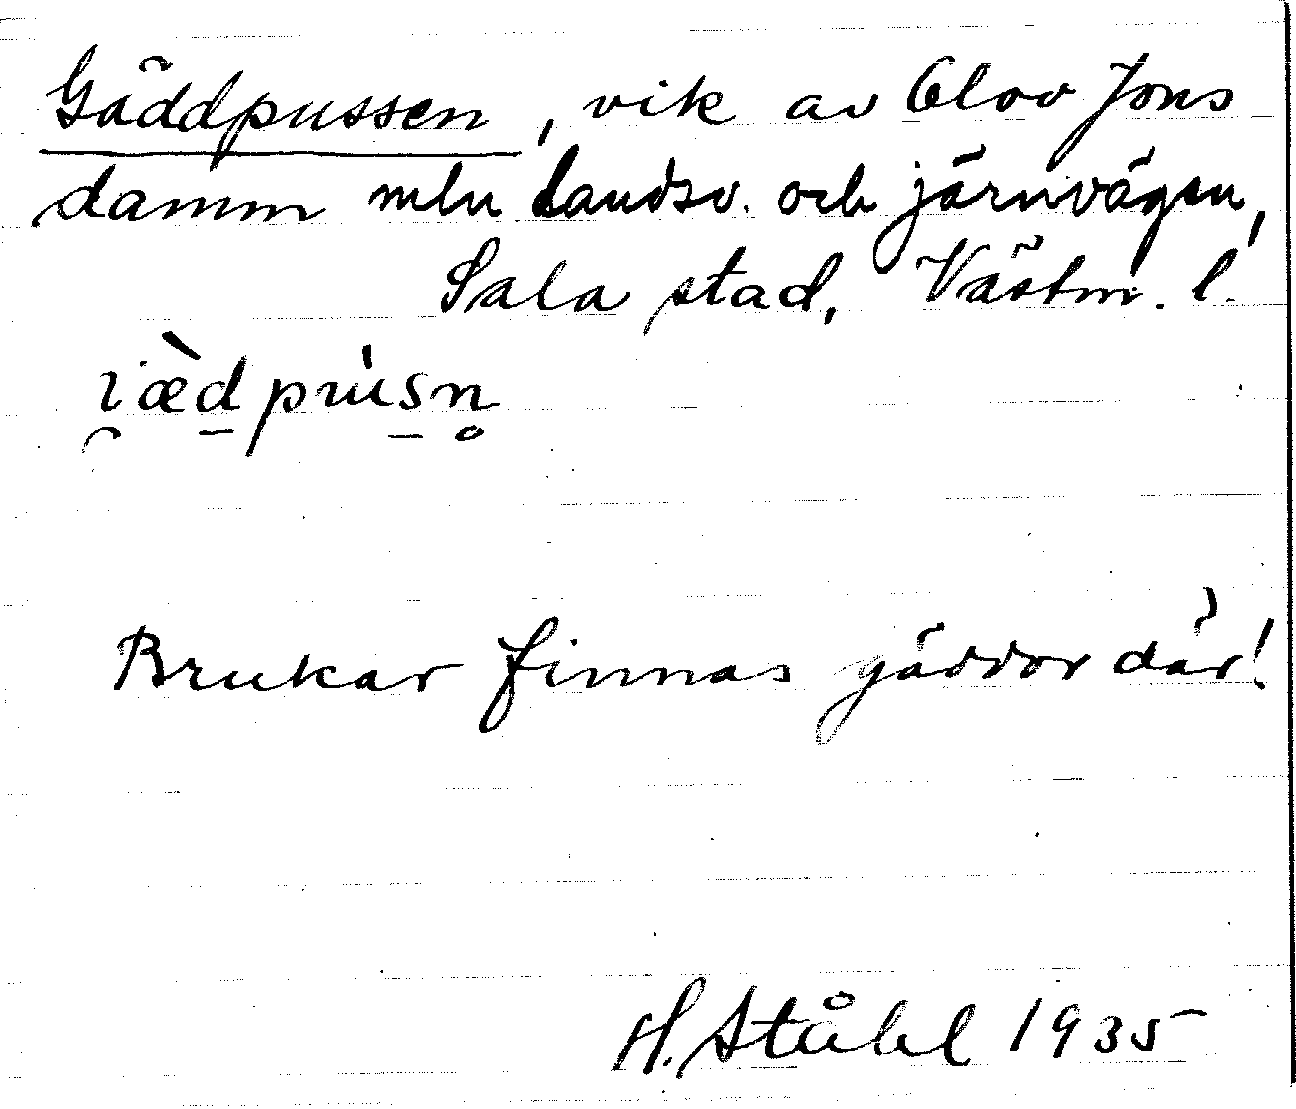 Gäddpussen, vik av Olov Jons
damm mln landsv. och järnvägen,
Sala stad, Västm. l.
Brukar finnas gäddor där!
H. Ståhl 1935